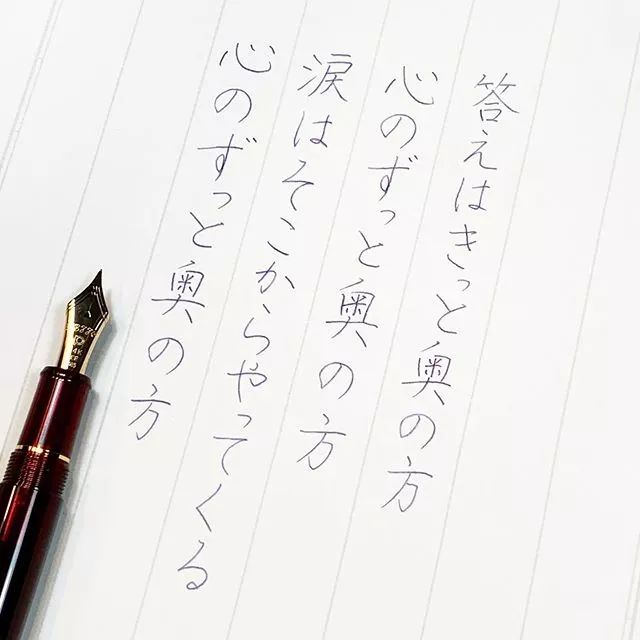 答えはきっと奥の方
心のずっと奥の方
涙はそこからやってくる
心のずっと奥の方